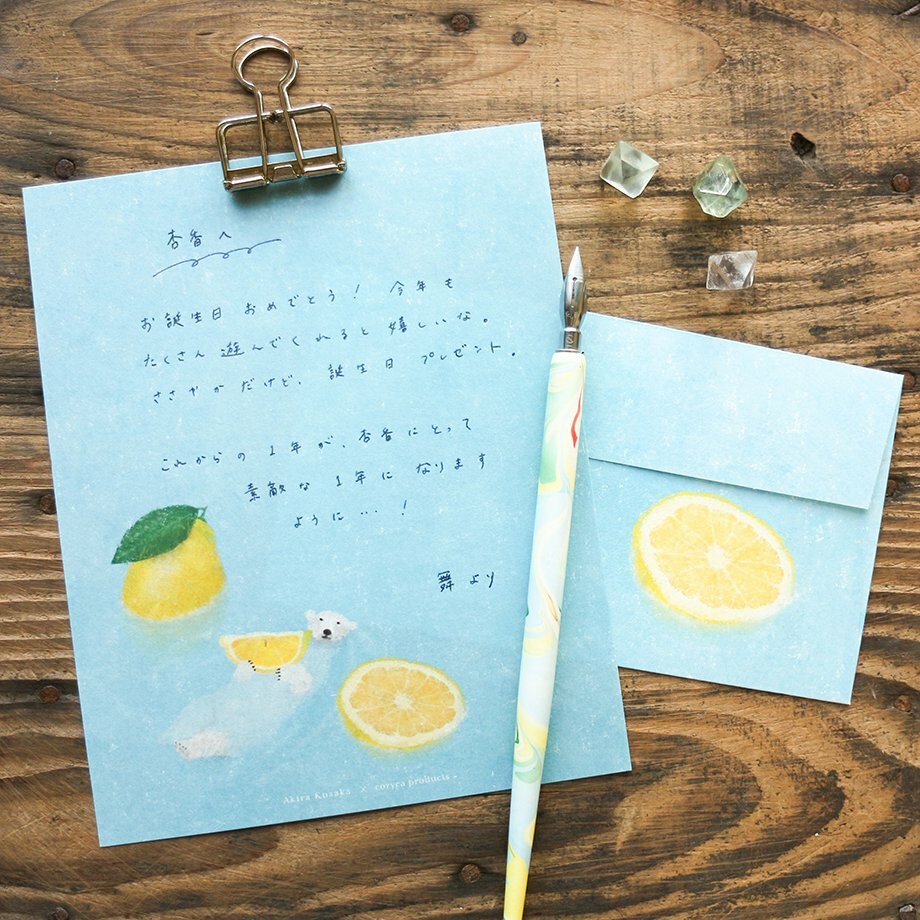 杏香へ
お誕生日おめでとう! 今年も
たくさん遊んでくれると嬉しいな。
ささやかだけど、誕生日プレゼント。
これからの1年が、杏香にとって
素敵な1年になります
ように…!
舞より
Akira Kusaka × coryca products